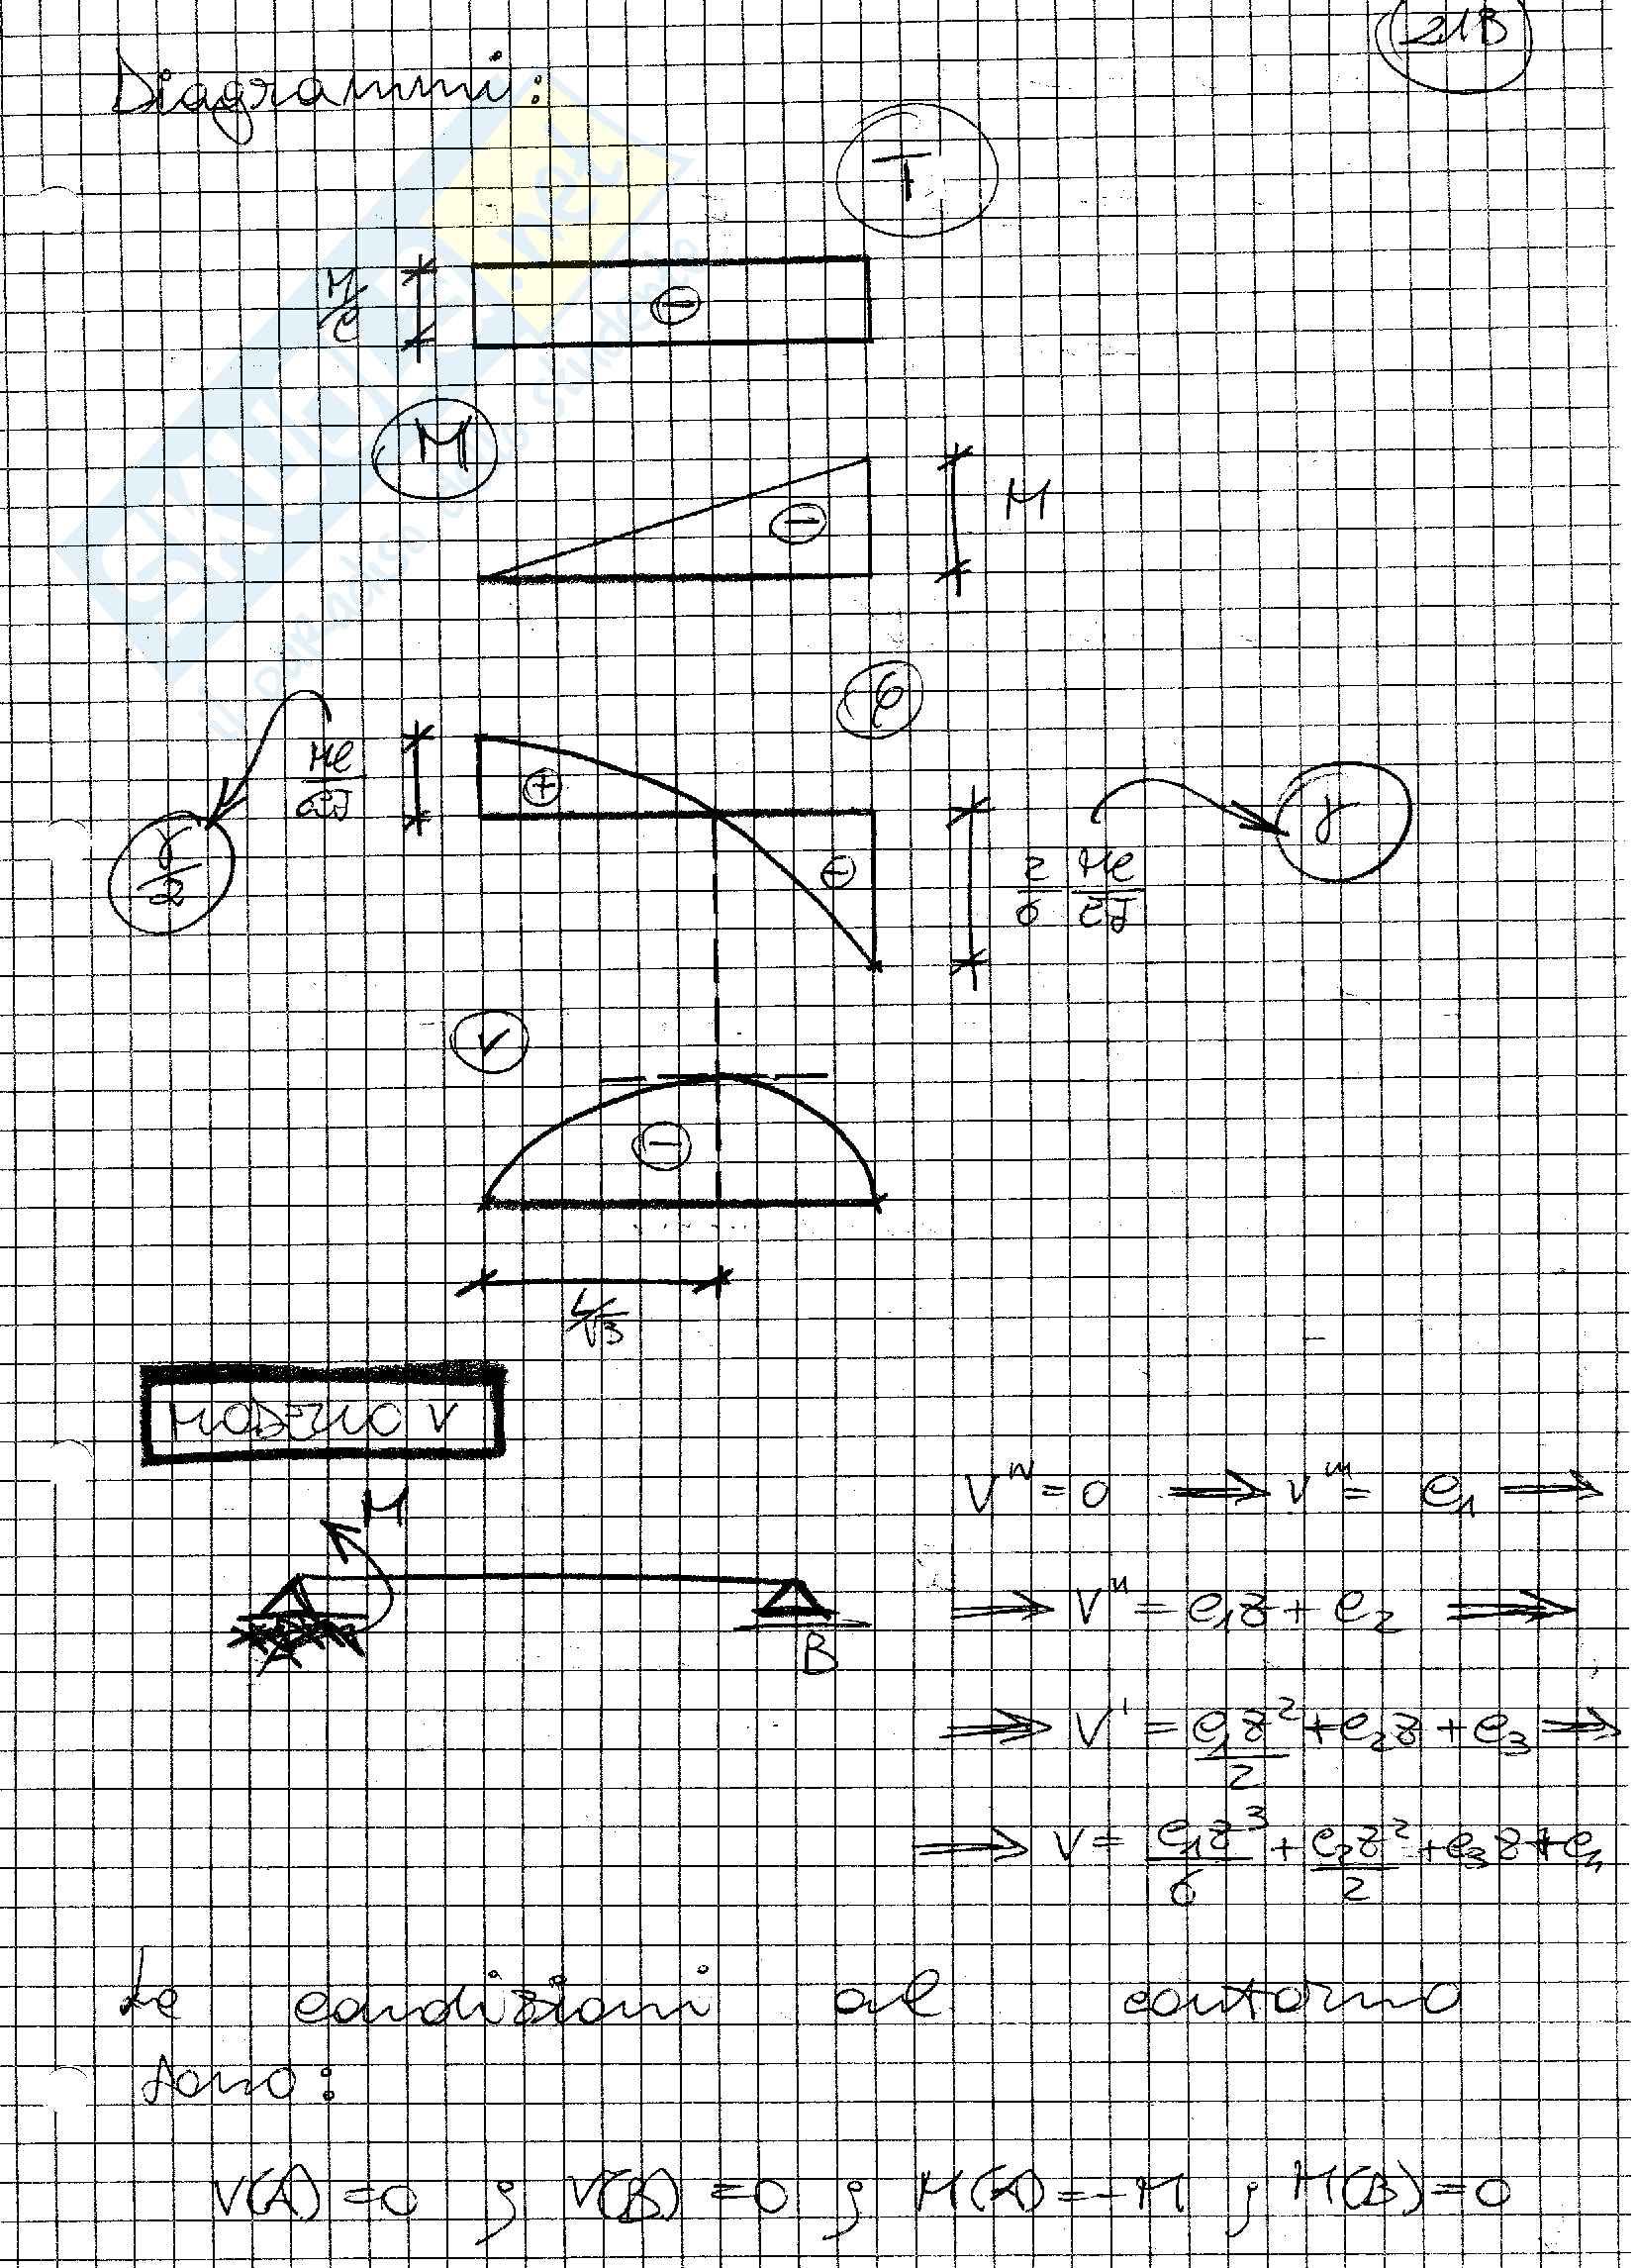 21B
Diagrammi:
T
M/l
⊖
M
⊖
M
φ
Ml/6EJ
⊕
γ/2
⊖
2/6 Ml/EJ
γ
v
⊖
L/√3
MODELLO V
M
B
V^IV = 0 ⟹ v''' = c₁ ⟹
⟹ V'' = c₁z + c₂ ⟹
⟹ V' = c₁z²/2 + c₂z + c₃ ⟹
⟹ V = c₁z³/6 + c₂z²/2 + c₃z + c₄
Le condizioni al contorno
sono:
V(A) = 0 ; V(B) = 0 ; M(A) = -M ; M(B) = 0